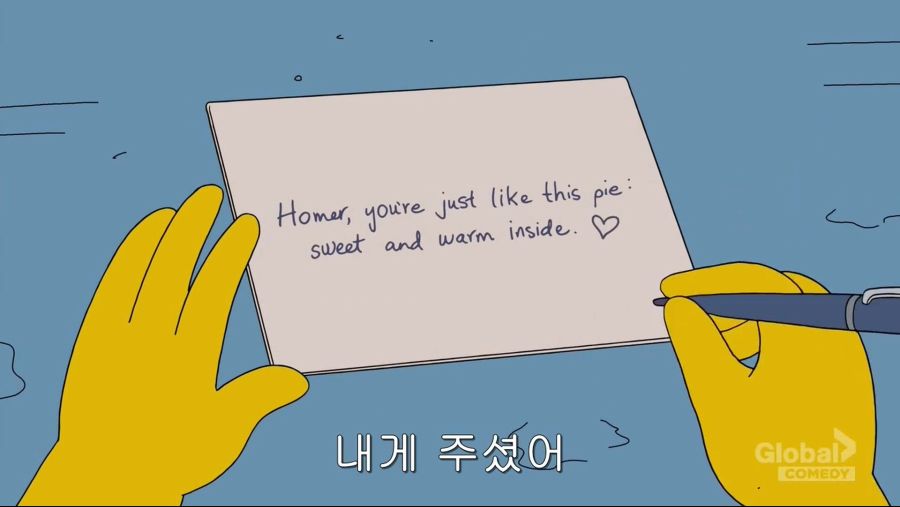 Homer, you're just like this pie:
sweet and warm inside. ♡
내게 주셨어
Global
COMEDY